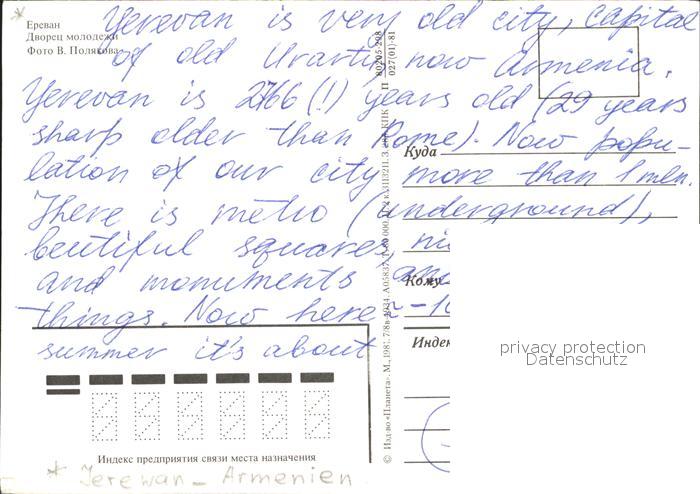 Ереван
Дворец молодежи
Фото В. Полякова
* Yerevan is very old city, capital
of old Urartu now Armenia.
Yerevan is 2766 (!) years old (29 years
sharp older than Rome). Now popu-
lation of our city more than 1 mln.
There is metro (underground),
beutiful squares,
and monuments and
things. Now here
summer it's about
Куда
Кому
Индекс предприятия связи места назначения
* Jerewan - Armenien
П 00205-298
027(01)-81
© Изд-во «Планета». М., 1981.
privacy protection
Datenschutz